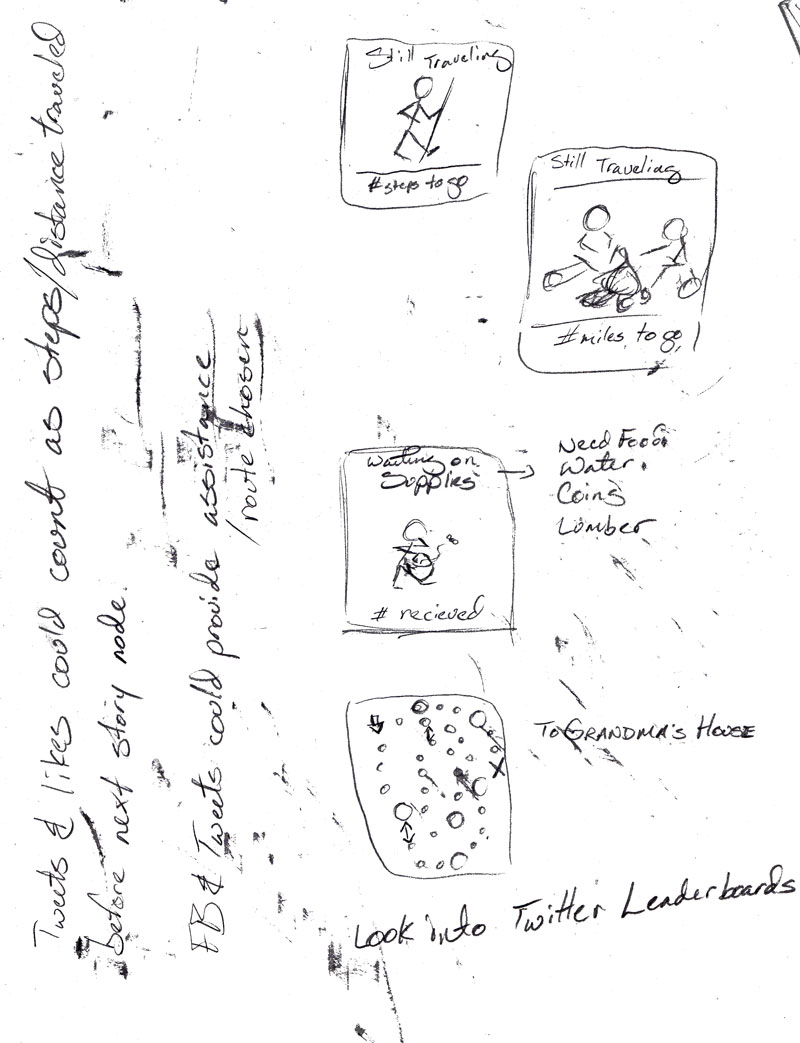 Tweets & likes could count as steps/distance traveled
before next story node.
FB & Tweets could provide assistance
/route chosen
Still Traveling
# steps to go
Still Traveling
# miles to go
Waiting on
Supplies
Need Food
Water
Coins
Lumber
# recieved
To Grandma's House
Look into Twitter Leaderboards